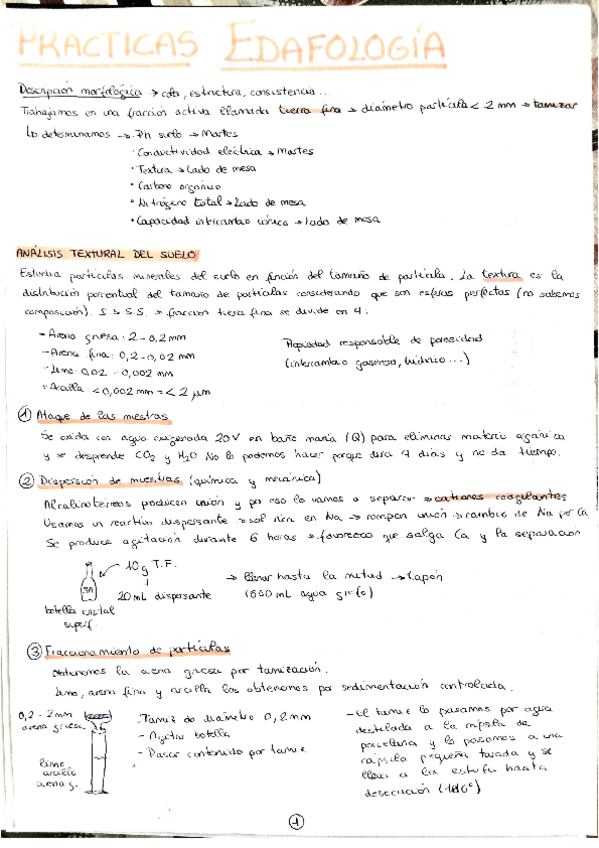 PRACTICAS EDAFOLOGÍA
Descripción morfológica → color, estructura, consistencia...
Trabajamos en una fracción activa llamada tierra fina → diámetro partícula < 2 mm → tamizar
Lo determinamos → · Ph suelo → Martes
· Conductividad eléctrica → Martes
· Textura → Lado de mesa
· Carbono orgánico
· Nitrógeno total → Lado de mesa
· Capacidad intercambio iónico → Lado de mesa
ANÁLISIS TEXTURAL DEL SUELO
Estudia partículas minerales del suelo en función del tamaño de partícula. La textura es la
distribución porcentual del tamaño de partículas considerando que son esferas perfectas (no sabemos
composición). S.S.S.S. → fracción tierra fina se divide en 4:
- Arena gruesa: 2 - 0,2 mm
- Arena fina: 0,2 - 0,02 mm
- Limo: 0,02 - 0,002 mm
- Arcilla: < 0,002 mm = < 2 µm
Propiedad responsable de porosidad
(intercambio gaseoso, hídrico...)
① Ataque de las muestras
Se oxida con agua oxigenada 20V en baño maría (Q) para eliminar materia orgánica
y se desprende CO2 y H2O No lo podemos hacer porque dura 7 días y no da tiempo.
② Dispersión de muestras (química y mecánica)
Alcalinotérreos producen unión y por eso lo vamos a separar → cationes coagulantes
Usamos un reactivo dispersante → sol rica en Na → rompen unión → cambio de Na por Ca
Se produce agitación durante 6 horas → favorezco que salga Ca y la separación
10g T.F.
20 mL dispersante
botella cristal
→ llenar hasta la mitad → tapón
(500 mL agua grifo)
③ Fraccionamiento de partículas
Obtenemos la arena gruesa por tamización.
Limo, arena fina y arcilla los obtenemos por sedimentación controlada.
0,2 - 2 mm
arena gruesa
limo
arcilla
arena g.
· Tamiz de diámetro 0,2 mm
- Agitar botella
- Pasar contenido por tamiz
- El tamiz lo pasamos por agua
destilada a la cápsula de
porcelana y lo pasamos a una
cápsula pequeña tarada y se
lleva a la estufa hasta
desecación
1